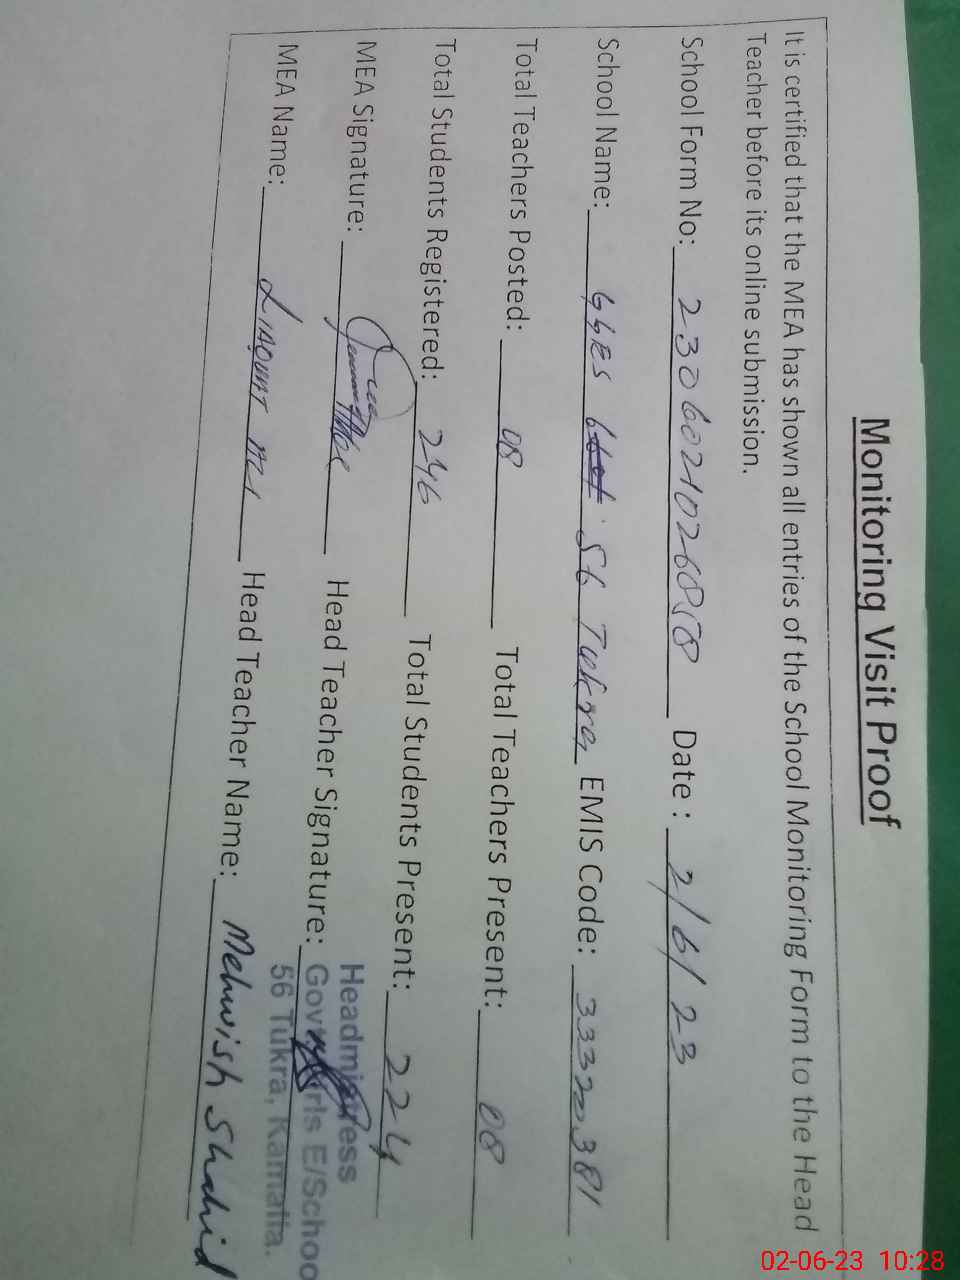 Monitoring Visit Proof
It is certified that the MEA has shown all entries of the School Monitoring Form to the Head
Teacher before its online submission.
School Form No: 2306021026858 Date : 2/6/23
School Name: GGES 56 Tukra EMIS Code: 33320381
Total Teachers Posted: 08 Total Teachers Present: 08
Total Students Registered: 246 Total Students Present: 224
MEA Signature: Head Teacher Signature:
MEA Name: LIAQUAT ALI Head Teacher Name: Mehwish Shahid
Headmistress
Govt. Girls E/School
56 Tukra, Kamalia.
02-06-23 10:28